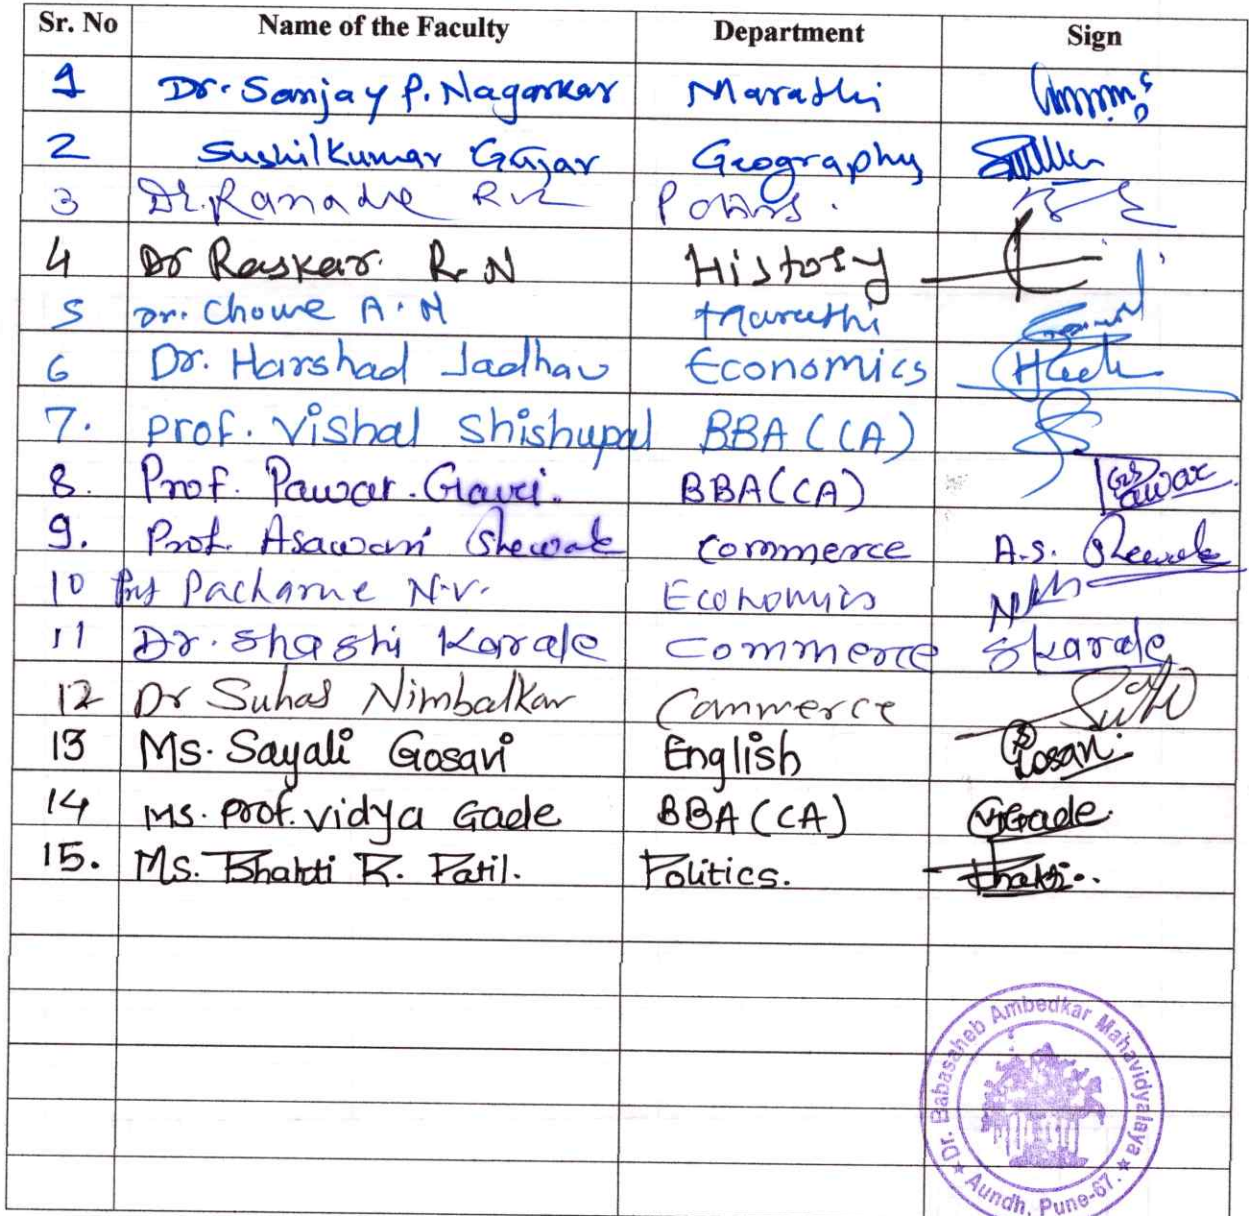 Sr. No Name of the Faculty Department Sign
1 Dr. Sanjay P. Nagarkar Marathi
2 Sushilkumar Gajar Geography
3 Dr. Ranade
4 Dr Raskar R. N History
5 Dr. Chowe A. N Marathi
6 Dr. Harshad Jadhav Economics
7. Prof. Vishal Shishupal BBA (CA)
8. Prof. Pawar. Gauri. BBA(CA)
9. Prof. Asawari Shewale Commerce A.S. Shewale
10 Pacharne N.V. Economics
11 Dr. Shashi Karale Commerce Skarale
12 Dr Suhas Nimbalkar Commerce
13 Ms. Sayali Gosavi English
14 Ms. Prof. Vidya Gade BBA (CA) VGade.
15. Ms. Bhakti R. Patil. Politics. Bhakti..
Dr. Babasaheb Ambedkar Mahavidyalaya
Aundh, Pune-67.